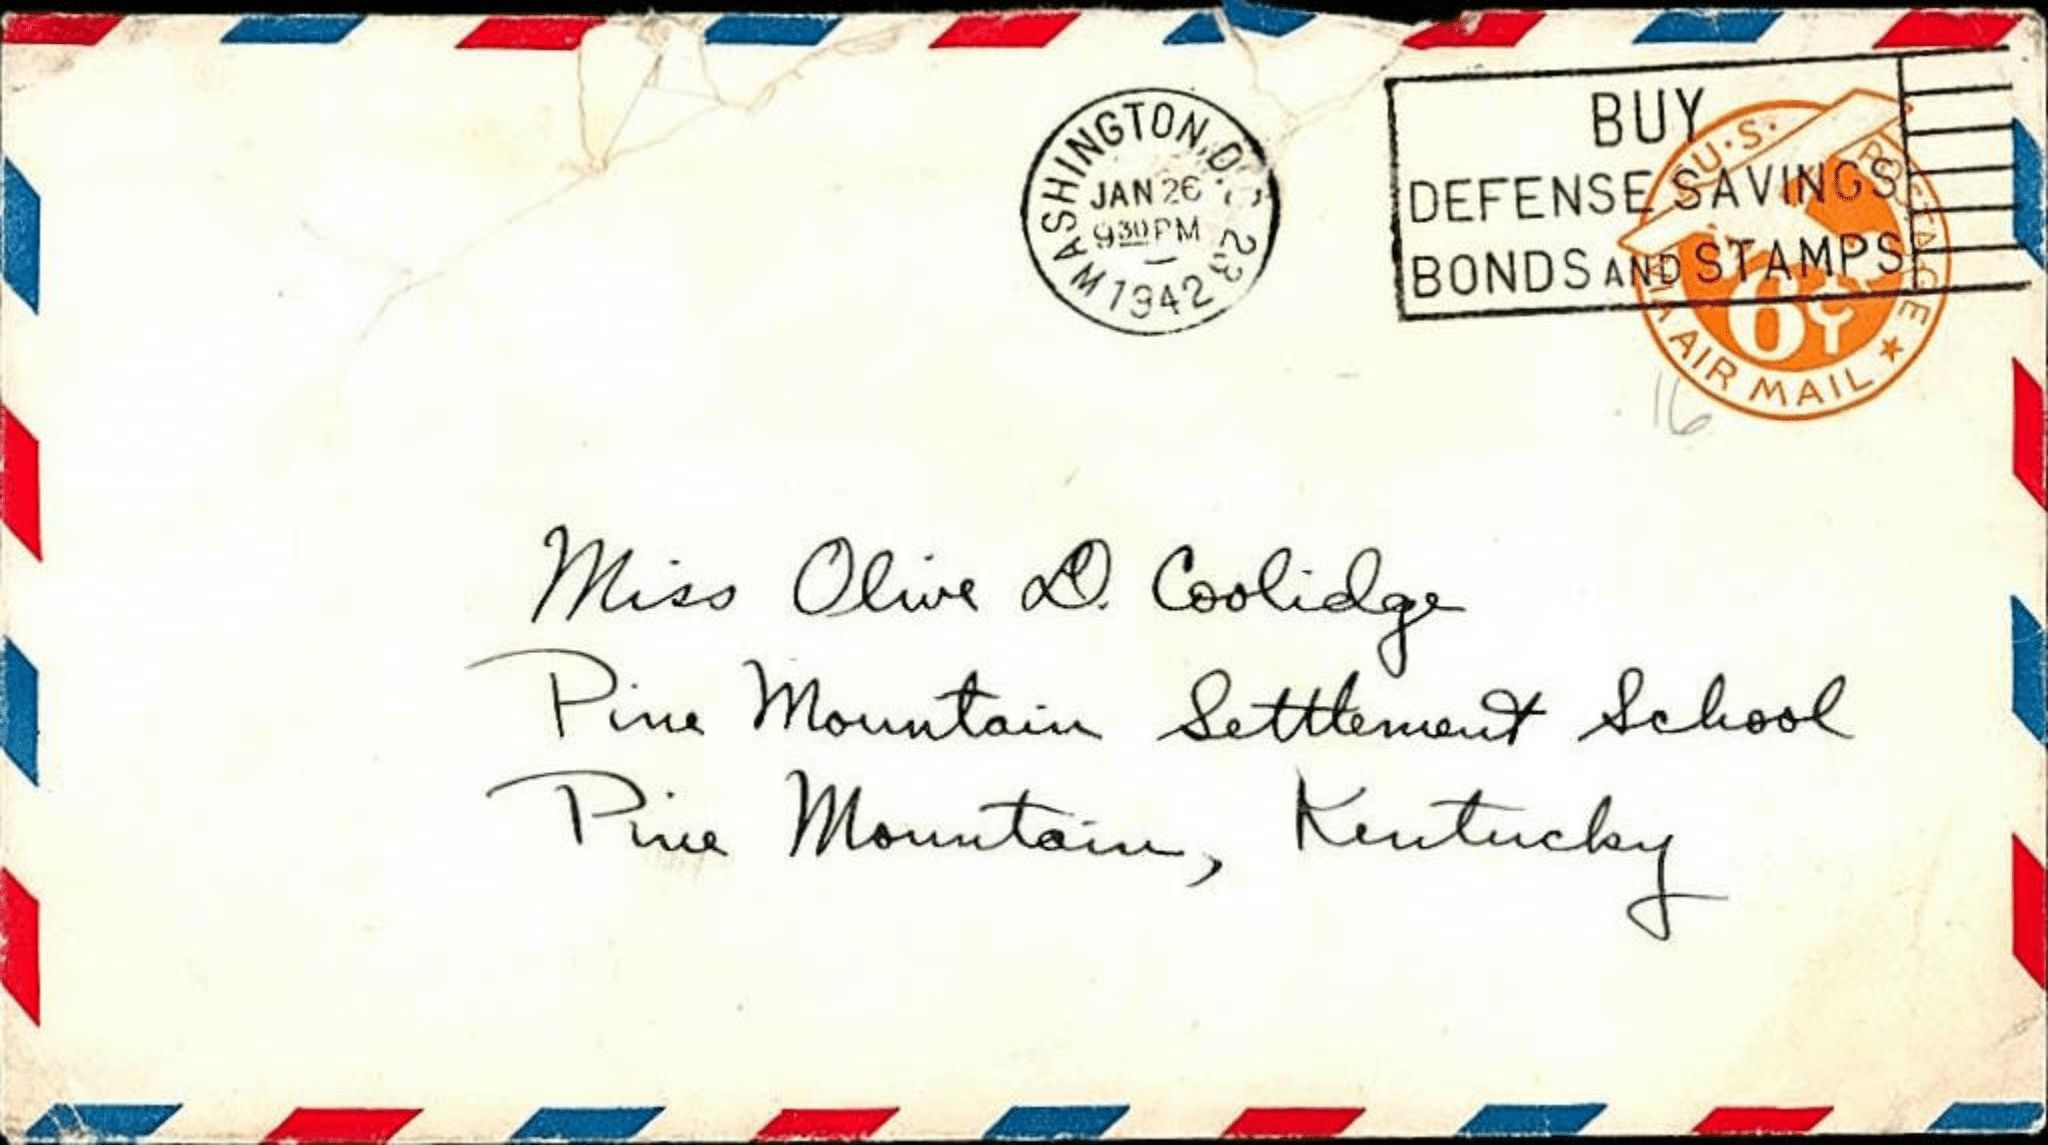 WASHINGTON, D.C. 23
JAN 26
9 30 PM
1942
BUY
DEFENSE SAVINGS
BONDS AND STAMPS
U.S. POSTAGE
VIA AIR MAIL
6¢
16
Miss Olive D. Coolidge
Pine Mountain Settlement School
Pine Mountain, Kentucky